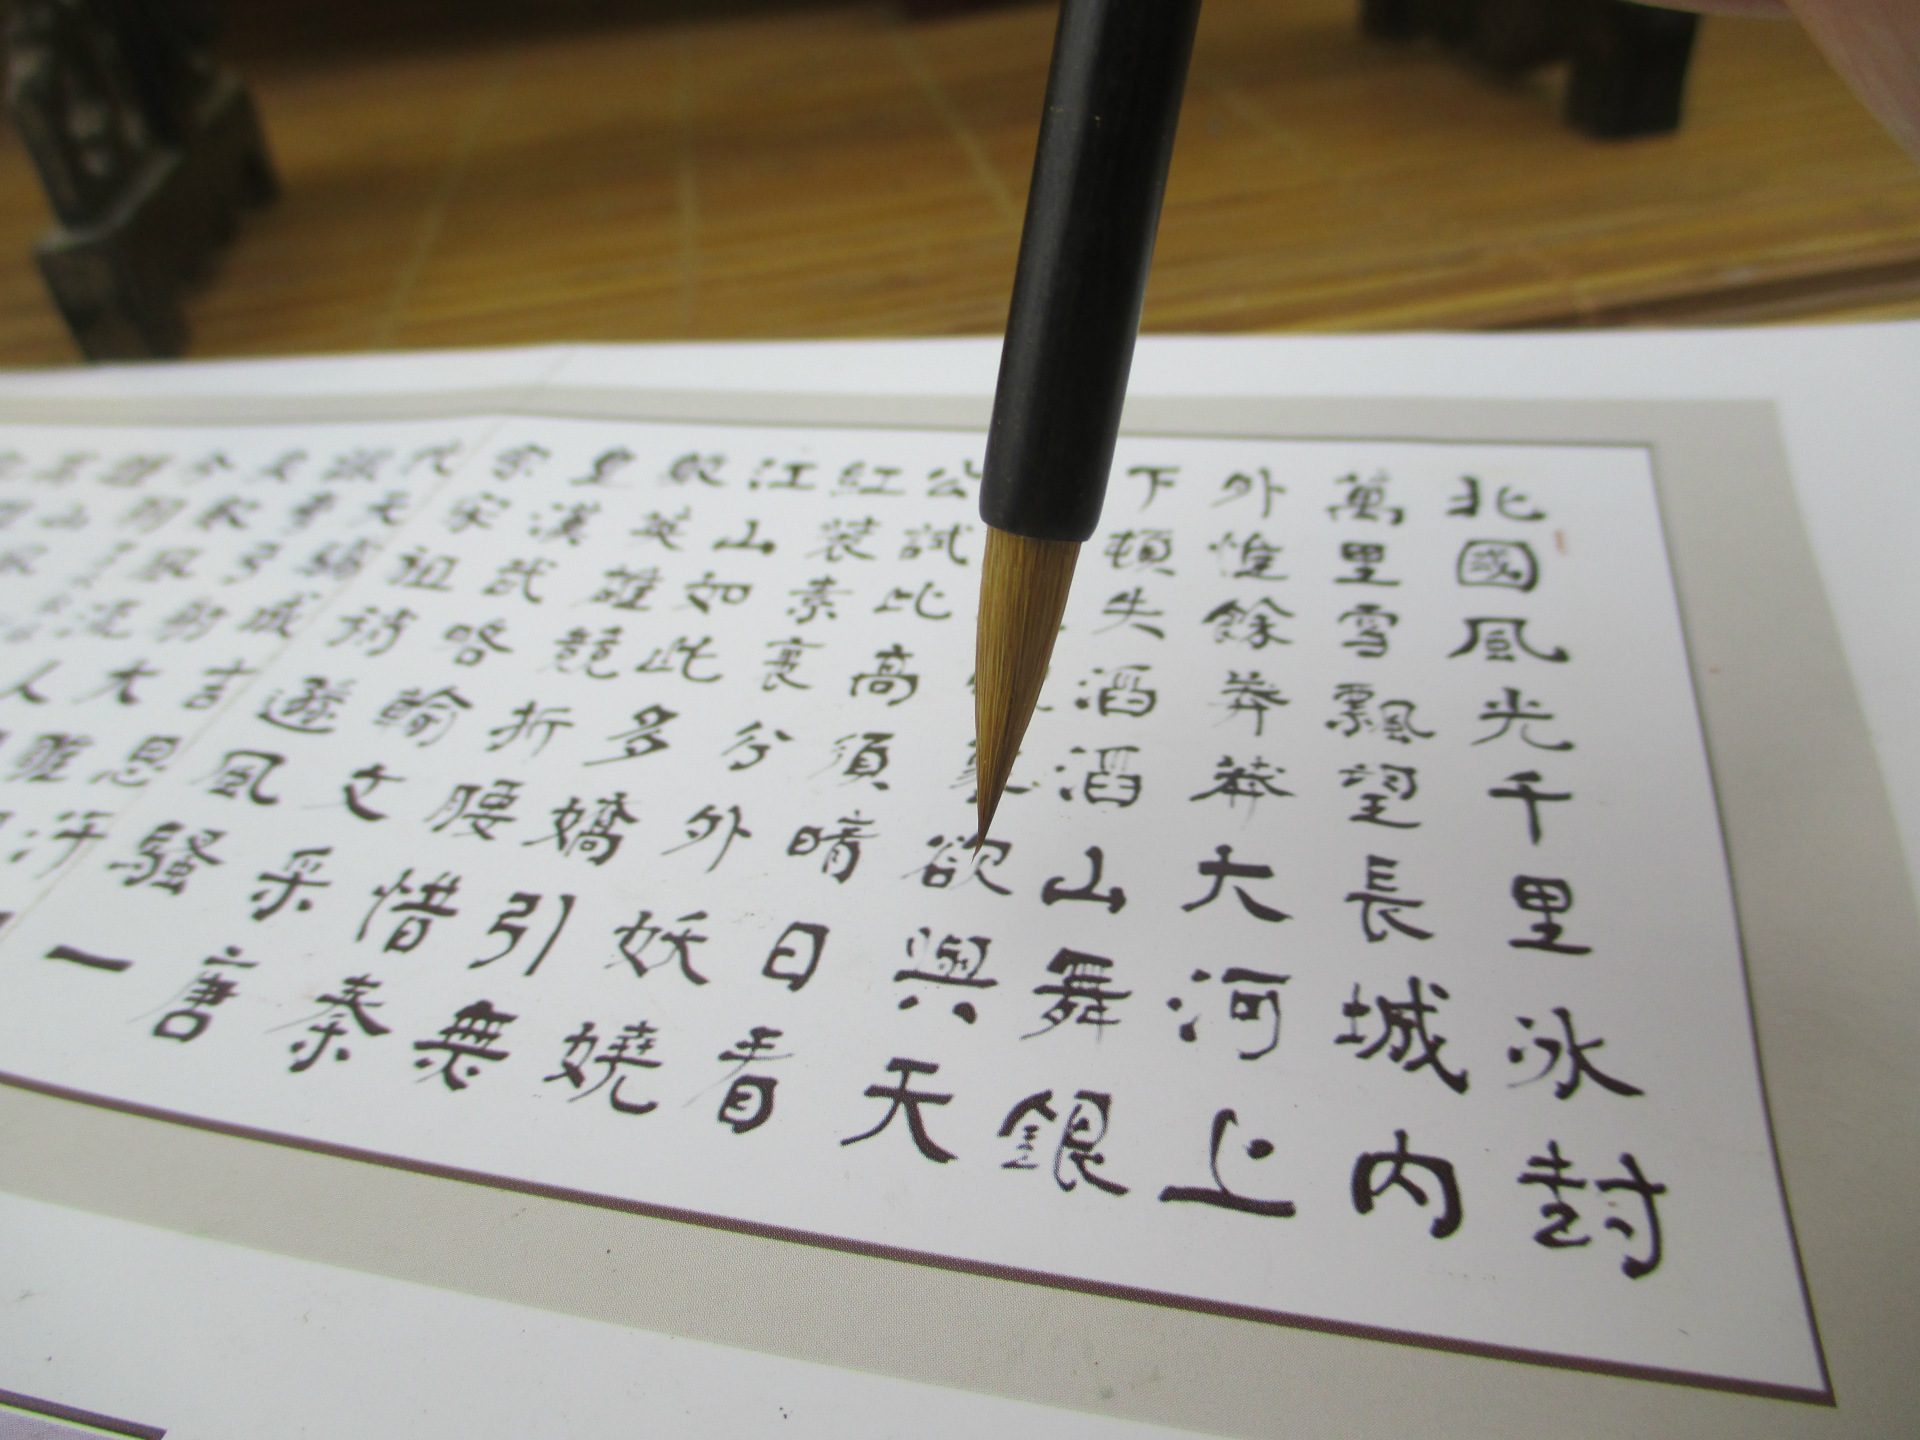 北國風光千里冰封
萬里雪飄望長城內
外惟餘莽莽大河上
下頓失滔滔山舞銀
欲與天
公試比高須晴日看
紅裝素裹分外妖嬈
江山如此多嬌引無
英雄競折腰惜秦
皇漢武略輸文采唐
宗宋祖稍遜風騷一
代天驕成吉思汗
識彎弓射大雕
矣數風流人
今朝